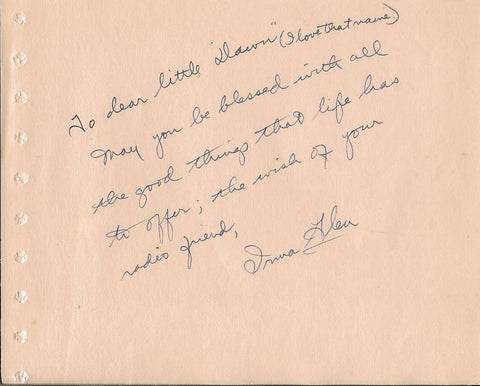 To dear little "Dawn" (I love that name.)
May you be blessed with all
the good things that life has
to offer; the wish of your
radio friend,
Irma Glen